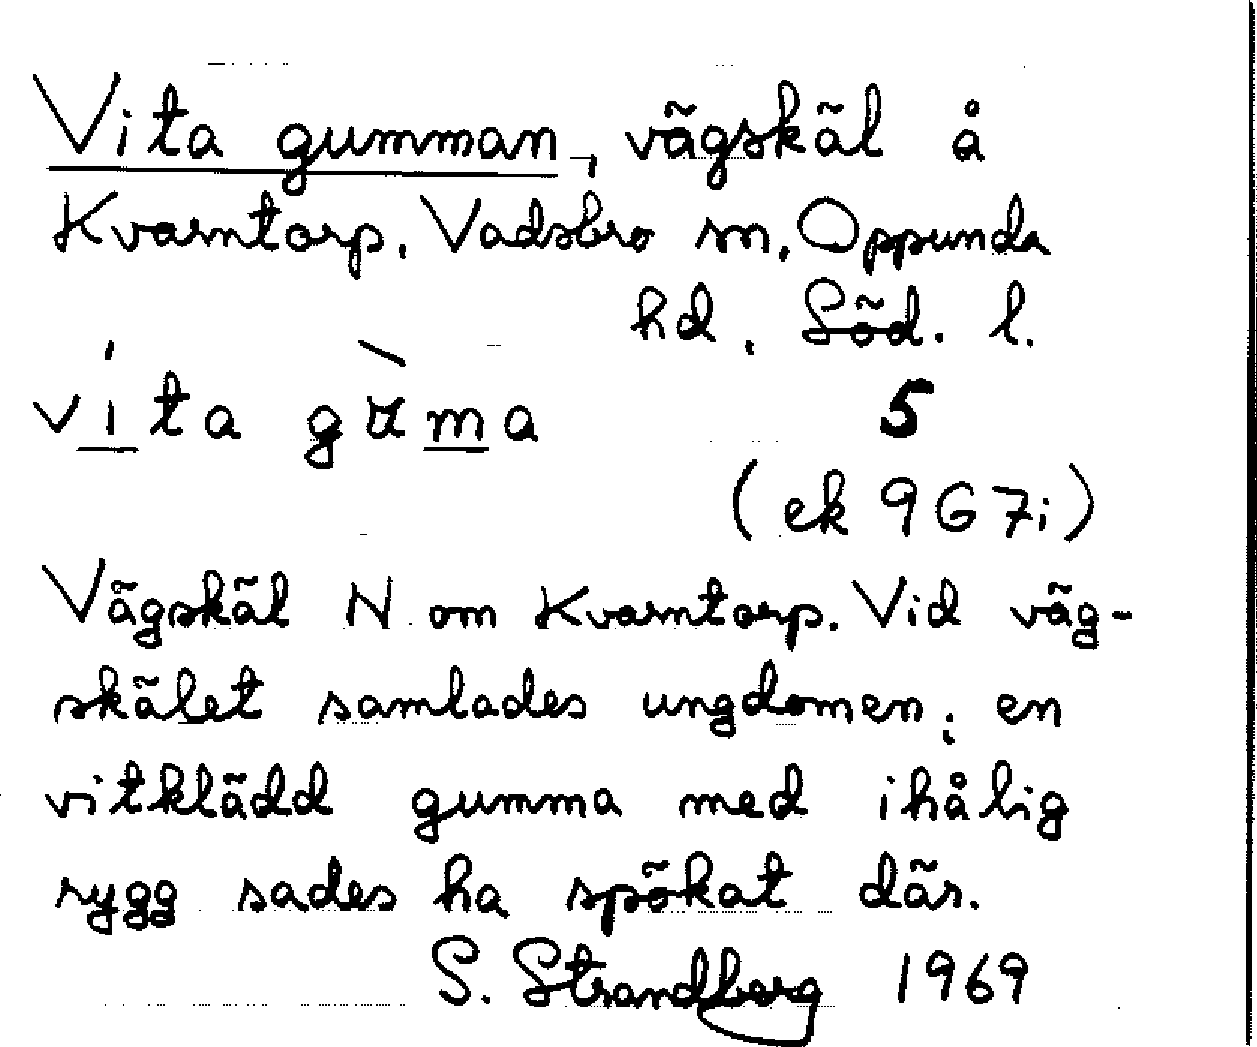 Vita gumman, vägskäl å
Kvarntorp, Vadsbro sn, Oppunda
hd, Söd. l.
víta gàma 5
(ek 9G7i)
Vägskäl N om Kvarntorp. Vid väg-
skälet samlades ungdomen; en
vitklädd gumma med ihålig
rygg sades ha spökat där.
S. Strandberg 1969